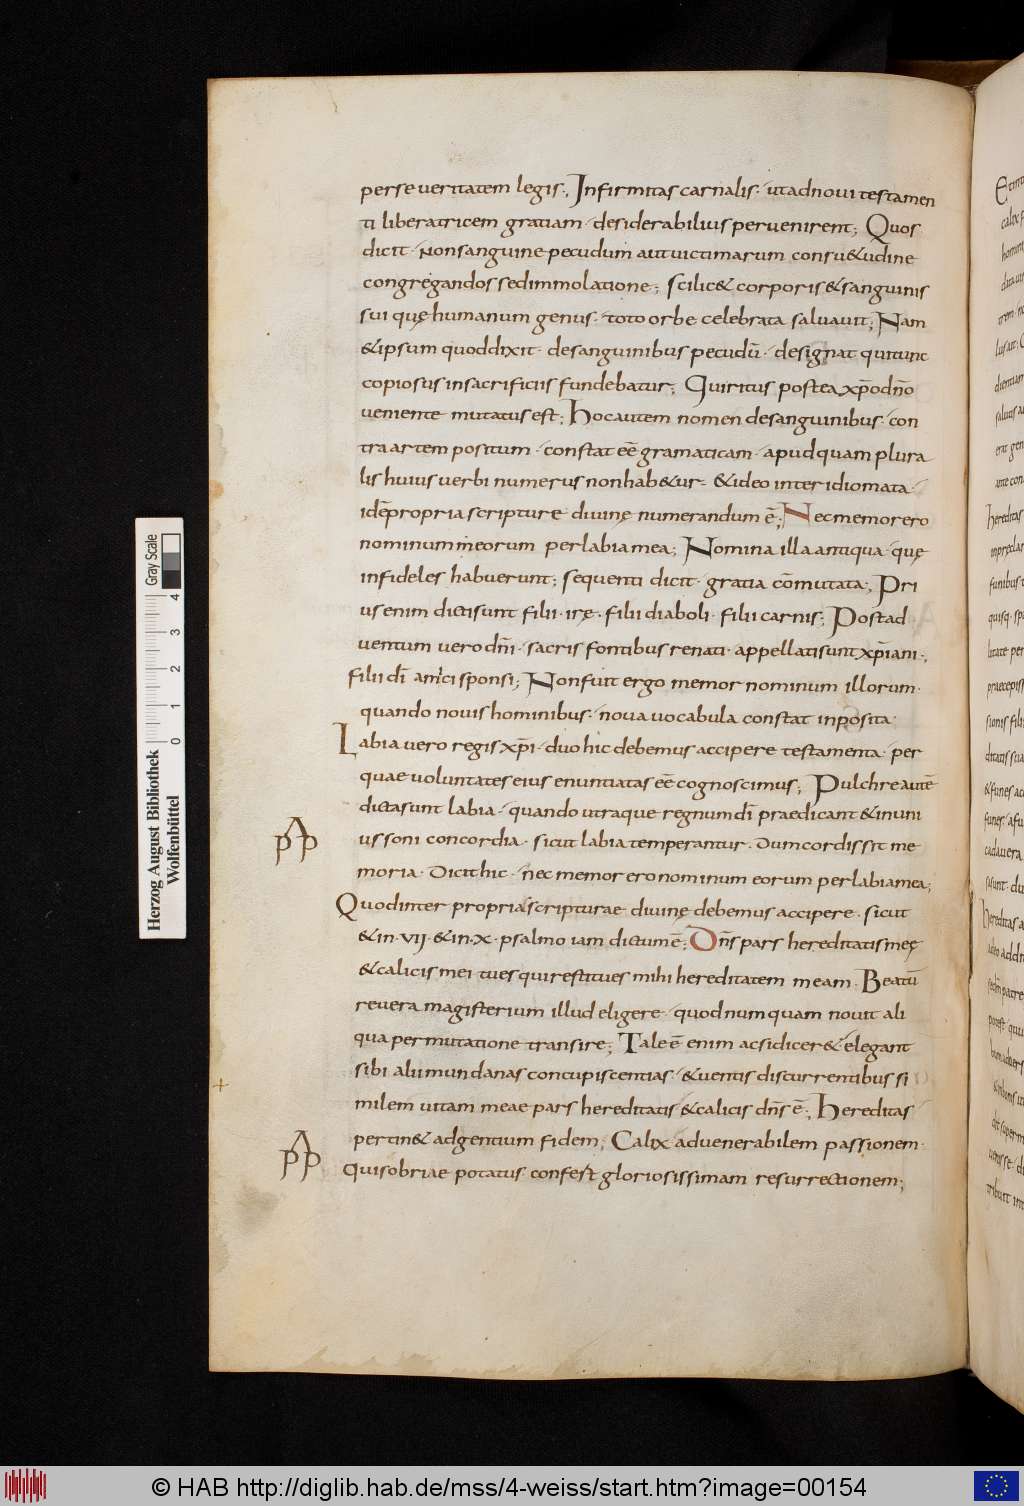 perse veritatem legis; Infirmitas carnalis· ut ad novi testamen
ti liberatricem gratiam· desiderabilius pervenirent; Quos
dicit· Non sanguine pecudum aut victimarum consu&udine
congregandos sed immolatione; scilic& corporis & sanguinis
sui quę humanum genus· toto orbe celebrata salvavit; Nam
& ipsum quod dixit· de sanguinibus pecudū· designat qui tunc
copiosus in sacrificiis fundebatur; Qui ritus postea xp̄o dn̄o
veniente mutatus est; Hoc autem nomen de sanguinibus· con
tra artem positum· constat eē gramaticam· apud quam plura
lis huius verbi numerus non hab&ur· & ideo inter idiomata·
id ē propria scripturę divinę numerandum ē; Nec memor ero
nominum meorum per labia mea; Nomina illa antiqua· quę
infideles habuerunt; sequenti dicit· gratia cōmutata; Pri
us enim dicti sunt filii· irę· filii diaboli· filii carnis; Post ad
ventum vero dn̄i· sacris fontibus renati· appellati sunt xp̄iani·,
filii dī amici sponsi; Non fuit ergo memor nominum illorum·
quando novis hominibus· nova vocabula constat inposita·
Labia vero regis xp̄i· duo hic debemus accipere testamenta· per
quae voluntates eius enuntiatas eē cognoscimus; Pulchre autē
dicta sunt labia· quando utraque regnum dī praedicant & in uni
us soni concordia· sicut labia temperantur· Dum cordis sit me
PP
moria· Dicit hic· nec memor ero nominum eorum per labia mea;
Quod inter propria scripturae divinę debemus accipere· sicut
& in· VII· & in· X· psalmo iam dictum ē; Dn̄s pars hereditatis meę
& calicis mei tu es qui restitues mihi hereditatem meam· Beatū
revera magisterium illud eligere· quod numquam novit ali
qua permutatione transire; Tale ē enim ac si dicer& elegant
sibi alii mundanas concupiscentias· & ventis discurrentibus si
milem vitam meae pars hereditatis & calicis dn̄s ē; Hereditas
pertin& ad gentium fidem; Calix ad venerabilem passionem·
PP
Qui sobriae potatus confest gloriosissimam resurrectionem;
Herzog August Bibliothek
Wolfenbüttel
0 1 2 3 4
Gray Scale
© HAB http://diglib.hab.de/mss/4-weiss/start.htm?image=00154